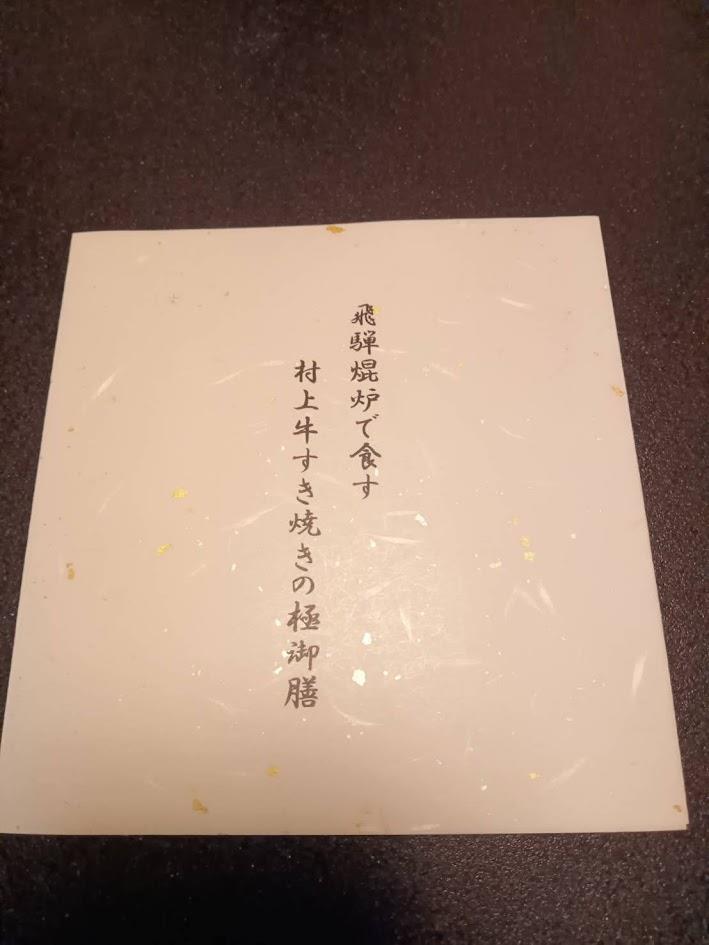 飛騨焜炉で食す
村上牛すき焼きの極御膳